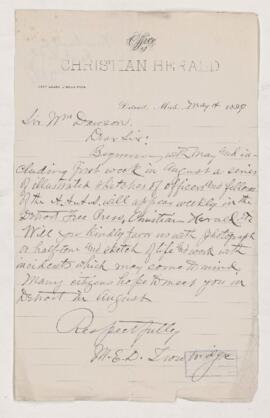 Office
of
CHRISTIAN HERALD
Detroit, Mich. May 4 1897
Sir Wm Dawson,
Dear Sir:
Beginning with May and in-
cluding first week in August a series
of illustrated sketches of officers and fellows
of the A.A.A.S. will appear weekly in the
Detroit Free Press, Christian Herald etc
Will you kindly favor us with photograph
or halftone and sketch of life and work with
incidents which may come to mind.
Many citizens hope to meet you in
Detroit in August
Respectfully
M.E.D. Trowbridge